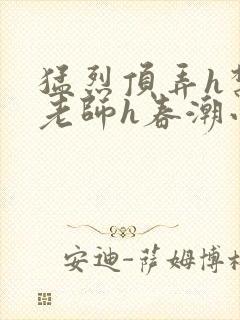 猛烈頂弄h
老師h春潮
安迪-薩姆博